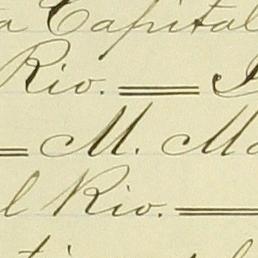 a Capital
Rio. =
= M. Ma
l Rio. =